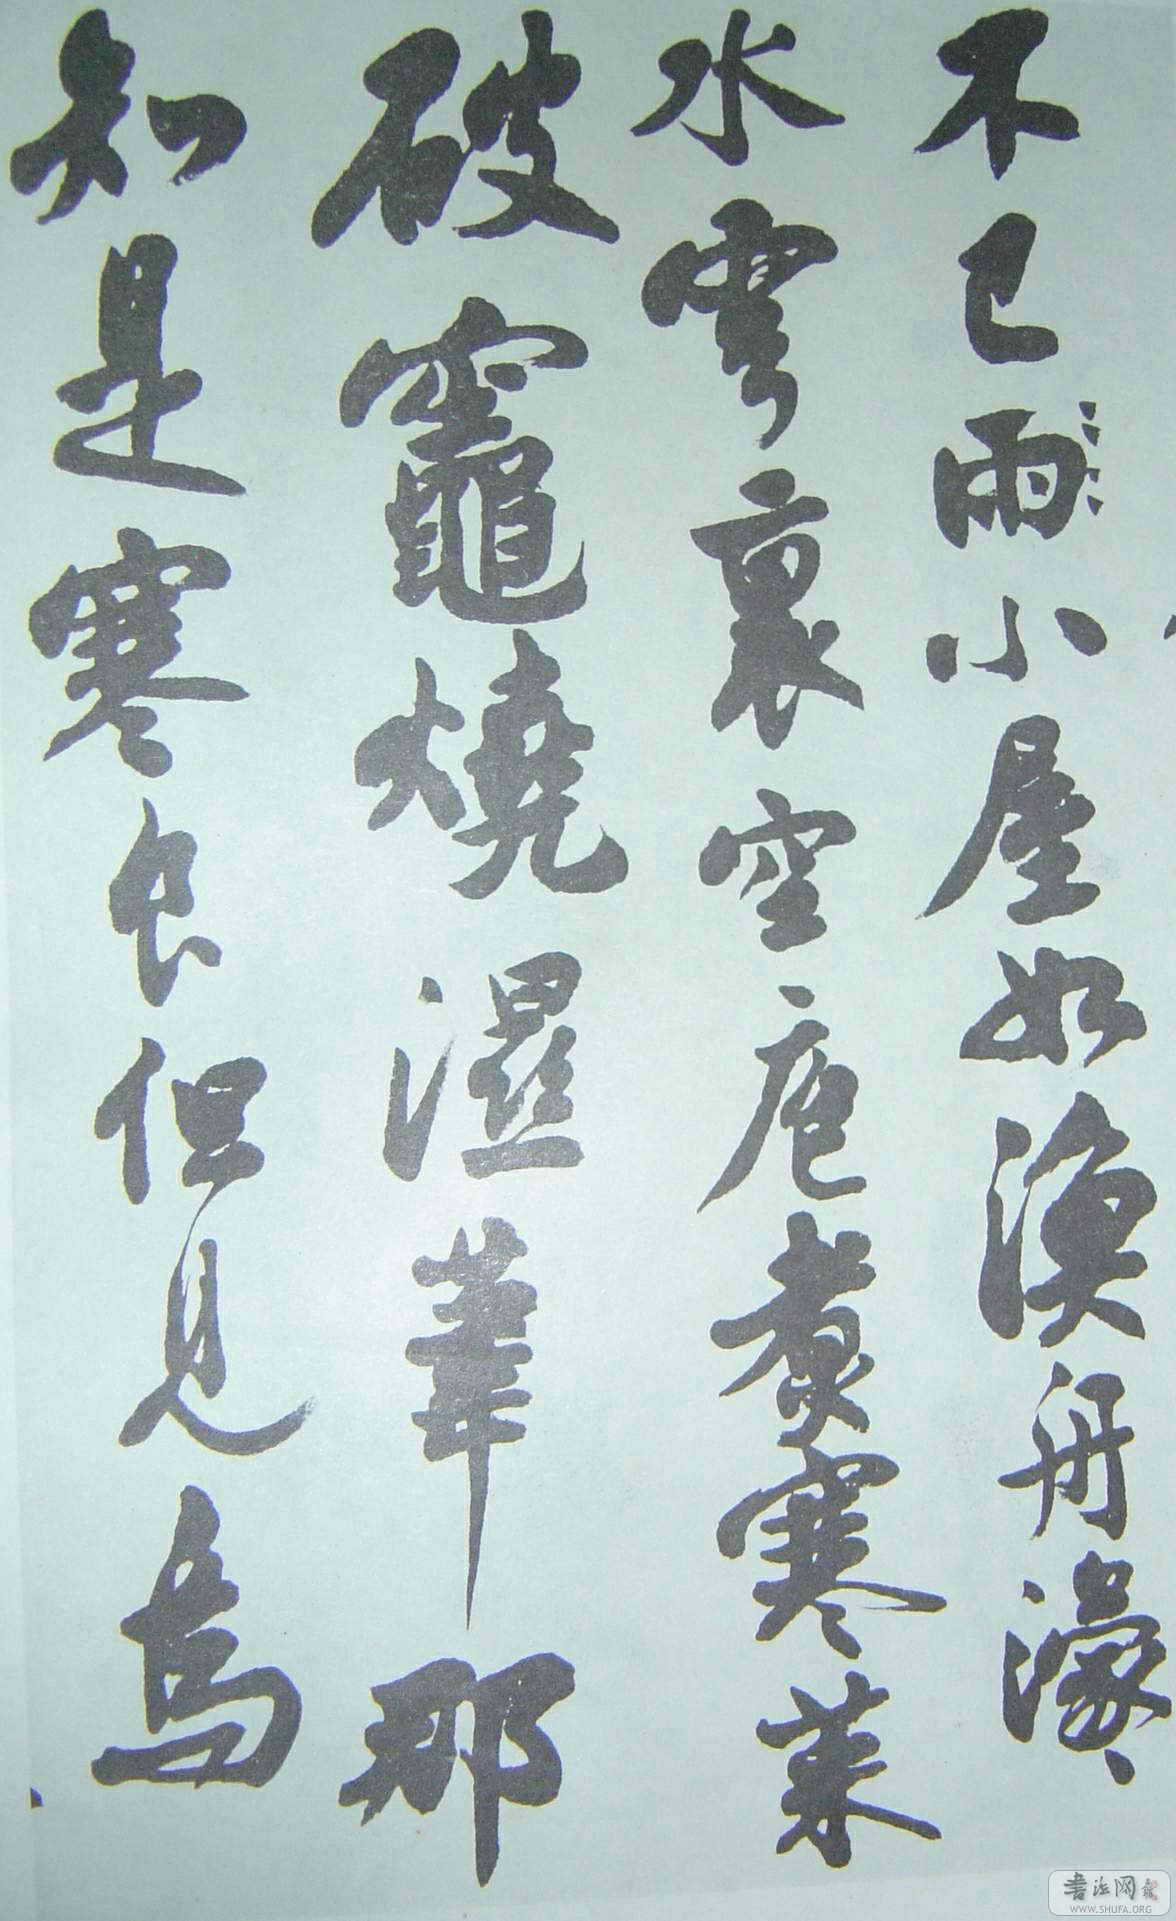 不已雨小屋如漁舟濛々
水雲裏空庖煮寒菜
破竈燒濕葦那
知是寒食但見烏
书法网
WWW.SHUFA.ORG